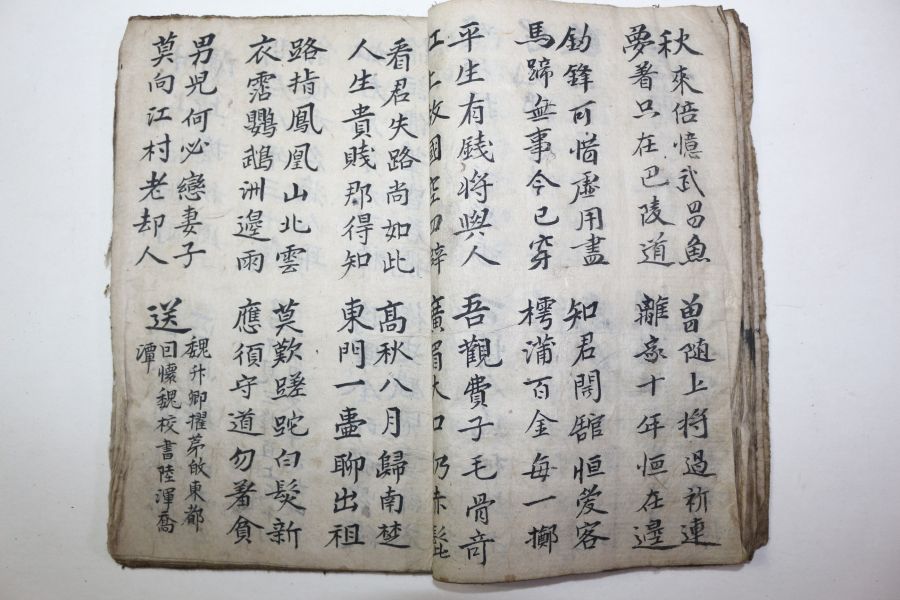 秋來倍憶武昌魚
夢着只在巴陵道
曽随上将過祈連
離家十年恒在邊
釰鋒可惜虛用盡
馬蹄無事今已穿
知君開舘恒愛客
樗蒲百金每一擲
平生有錢将與人
江上故國空四辟
吾觀費子毛骨竒
廣眉大口仍赤髭
看君失路尚如此
人生貴賎郡得知
高秋八月歸南楚
東門一壷聊出祖
路指鳳凰山北雲
衣霑鸚鵡洲邉雨
莫歎蹉跎白髮新
應須守道勿羞貧
男児何必戀妻子
莫向江村老却人
送魏升卿擢苐皈東都
囙懐魏校書陸渾喬
潭